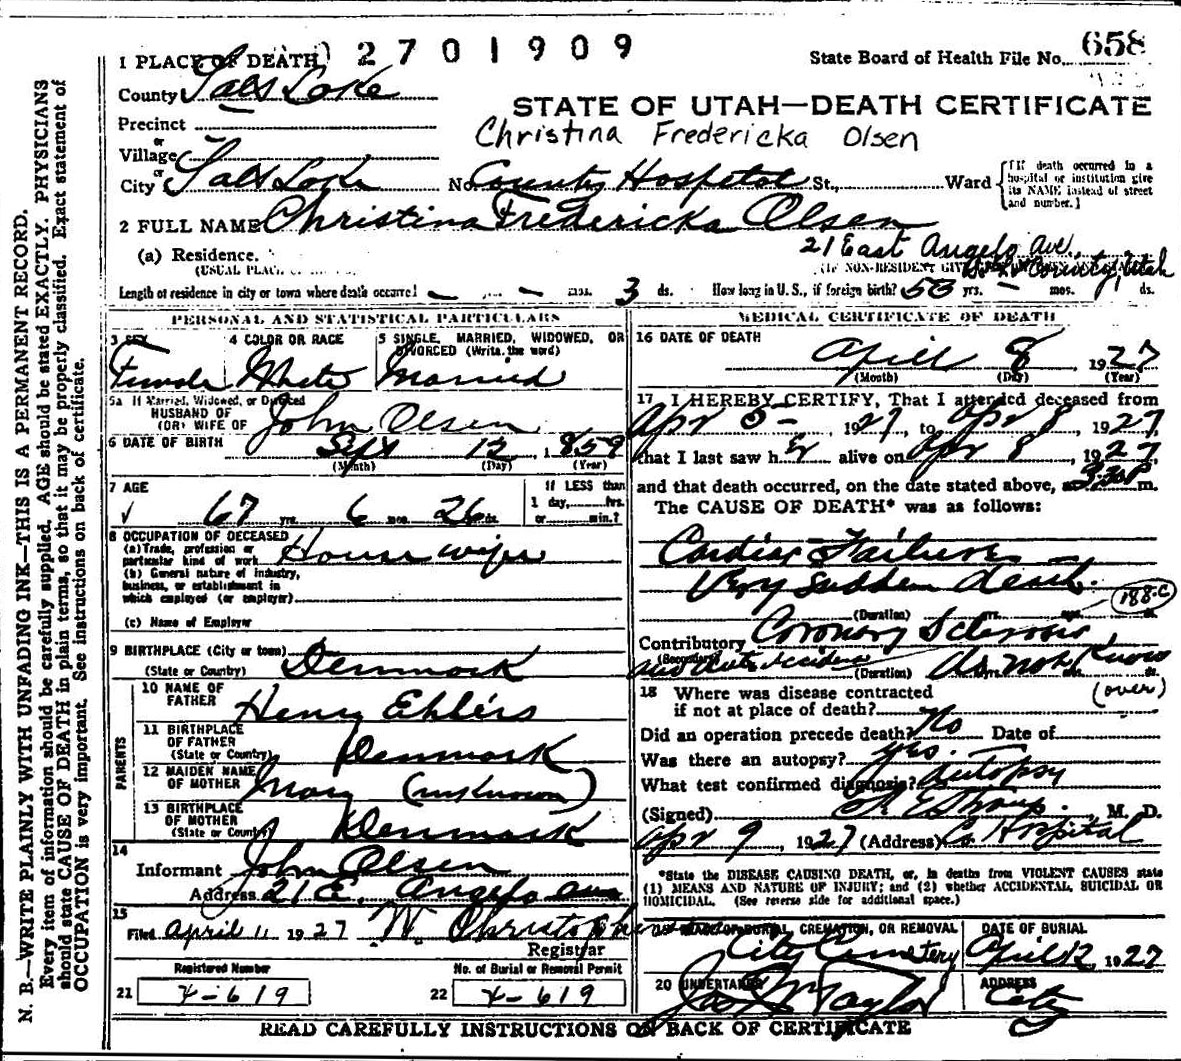 1 PLACE OF DEATH) 2701909
State Board of Health File No. 658
County Salt Lake
STATE OF UTAH—DEATH CERTIFICATE
Precinct
Christina Fredericka Olsen
or
Village
or
City Salt Lake No. County Hospital St., Ward
{[If death occurred in a hospital or institution give its NAME instead of street and number.]
2 FULL NAME Christina Fredericka Olsen
(a) Residence. 21 East Angelo Ave.,
(USUAL PLACE OF (IF NON-RESIDENT GIVE County, Utah
Length of residence in city or town where death occurred — yrs. — mos. 3 ds. How long in U. S., if foreign birth? 53 yrs. — mos. ds.
PERSONAL AND STATISTICAL PARTICULARS
3 SEX
Female
4 COLOR OR RACE
White
5 SINGLE, MARRIED, WIDOWED, OR
DIVORCED (Write the word)
Married
5a If Married, Widowed, or Divorced
HUSBAND OF
(OR) WIFE OF John Olsen
6 DATE OF BIRTH Sept 12, 1859
(Month) (Day) (Year)
7 AGE
67 yrs. 6 mos. 26 ds.
If LESS than
1 day, hrs.
or min.?
8 OCCUPATION OF DECEASED
(a) Trade, profession or
particular kind of work House wife
(b) General nature of industry,
business, or establishment in
which employed (or employer)
(c) Name of Employer
9 BIRTHPLACE (City or town)
(State or Country) Denmark
PARENTS
10 NAME OF
FATHER Henry Ehlers
11 BIRTHPLACE
OF FATHER
(State or Country) Denmark
12 MAIDEN NAME
OF MOTHER Mary (unknown)
13 BIRTHPLACE
OF MOTHER
(State or Country) Denmark
14
Informant John Olsen
Address 21 E. Angelo Ave
15
Filed April 11 1927 W. Christopherson
Registrar
Registered Number
21 4-619
No. of Burial or Removal Permit
22 4-619
MEDICAL CERTIFICATE OF DEATH
16 DATE OF DEATH
April 8, 1927
(Month) (Day) (Year)
17 I HEREBY CERTIFY, That I attended deceased from
Apr 5-, 1927, to Apr 8, 1927,
that I last saw her alive on Apr 8, 1927,
and that death occurred, on the date stated above, at 3:30 P m.
The CAUSE OF DEATH* was as follows:
Cardiac Failure
Very sudden death.
(Duration) yrs. mos. ds.
188-C
Contributory Coronary Sclerosis,
(Secondary) and auto accident (Duration) do not know
18 Where was disease contracted (over)
if not at place of death?
Did an operation precede death? No Date of
Was there an autopsy? yes.
What test confirmed diagnosis? Autopsy
(Signed) M. D.
Apr 9, 1927 (Address) Co. Hospital
*State the DISEASE CAUSING DEATH, or, in deaths from VIOLENT CAUSES state
(1) MEANS AND NATURE OF INJURY; and (2) whether ACCIDENTAL, SUICIDAL OR
HOMICIDAL. (See reverse side for additional space.)
19 PLACE OF BURIAL, CREMATION, OR REMOVAL
City Cemetery
DATE OF BURIAL
April 12, 1927
20 UNDERTAKER
Taylor
ADDRESS
City
READ CAREFULLY INSTRUCTIONS ON BACK OF CERTIFICATE
N. B.—WRITE PLAINLY WITH UNFADING INK—THIS IS A PERMANENT RECORD.
Every item of information should be carefully supplied. AGE should be stated EXACTLY. PHYSICIANS
should state CAUSE OF DEATH in plain terms, so that it may be properly classified. Exact statement of
OCCUPATION is very important. See instructions on back of certificate.